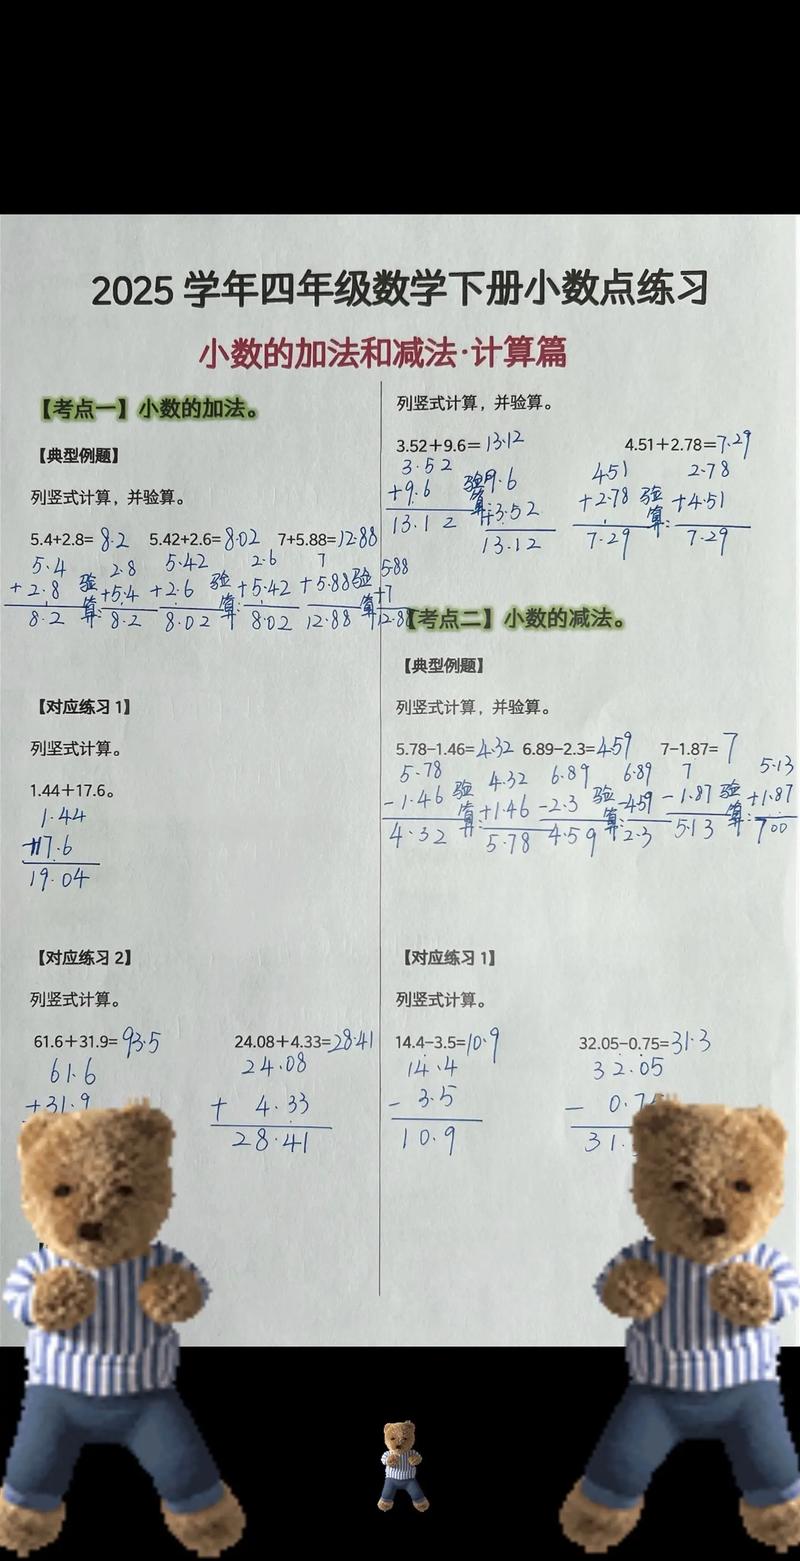 2025 学年四年级数学下册小数点练习
小数的加法和减法·计算篇
【考点一】小数的加法。
【典型例题】
列竖式计算，并验算。
5.4+2.8= 8.2 5.42+2.6= 8.02 7+5.88= 12.88
5.4 2.8 5.42 2.6 7 5.88
+2.8 验算: +5.4 +2.6 验算: +5.42 +5.88 验算 +7
8.2 8.2 8.02 8.02 12.88 12.88
【对应练习 1】
列竖式计算。
1.44＋17.6。
1.44
+17.6
19.04
【对应练习 2】
列竖式计算。
61.6＋31.9= 93.5 24.08＋4.33= 28.41
61.6 24.08
+31.9 + 4.33
28.41
列竖式计算，并验算。
3.52＋9.6= 13.12 4.51＋2.78= 7.29
3.52 9.6 451 2.78
+9.6 验算: +3.52 +2.78 验算: +4.51
13.12 13.12 7.29 7.29
【考点二】小数的减法。
【典型例题】
列竖式计算，并验算。
5.78−1.46= 4.32 6.89−2.3= 4.59 7−1.87= 7
5.78 4.32 6.89 6.89 7 5.13
-1.46 验算: +1.46 -2.3 验算: -4.59 -1.87 验算: +1.87
4.32 5.78 4.59 2.3 5.13 7.00
【对应练习 1】
列竖式计算。
14.4−3.5= 10.9 32.05−0.75= 31.3
14.4 32.05
- 3.5 - 0.7
10.9 31.